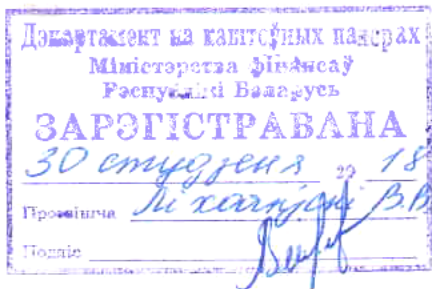 Дэпартамент па каштоўных паперах
Міністэрства фінансаў
Рэспублікі Беларусь
ЗАРЭГІСТРАВАНА
30 студзеня 20 18
Прозвішча В.В
Подпіс